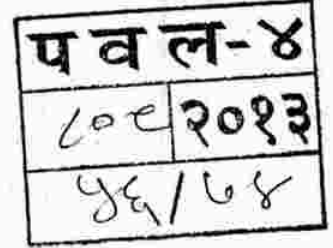 प व ल-४
८०९ २०१३
५६/७४